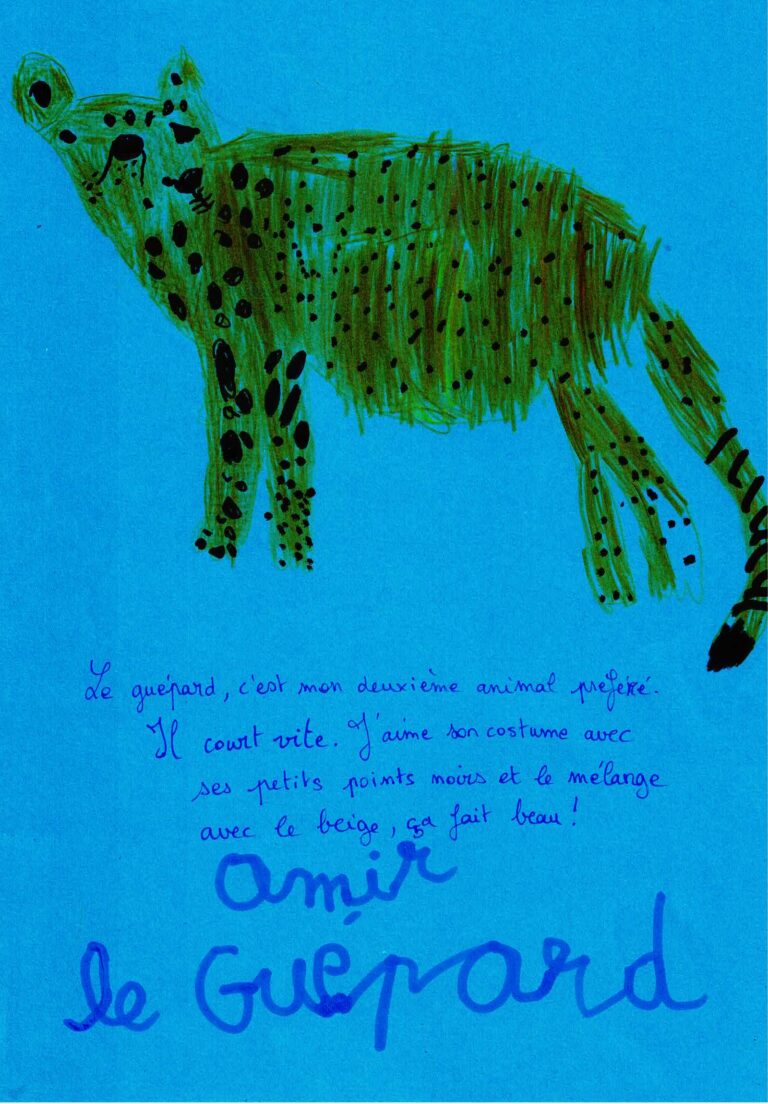 Le guépard, c'est mon deuxième animal préféré.
Il court vite. J'aime son costume avec
ses petits points noirs et le mélange
avec le beige, ça fait beau !
amir
le Guépard